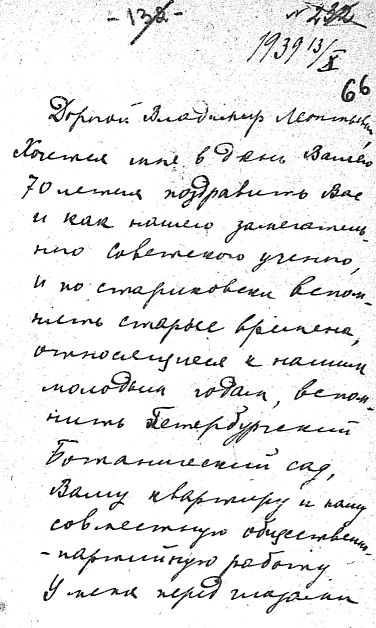 - 132 -
№ 232
1939 13/X
66
Дорогой Владимир Леонтьевич
Хочется мне в день Вашего
70летия поздравить Вас
и как нашего замечатель-
ного советского ученого,
и по стариковски вспом-
нить старые времена,
относящиеся к нашим
молодым годам, вспом-
нить Петербургский
Ботанический сад,
Вашу квартиру и нашу
совместную обществен-
-партийную работу
У меня перед глазами